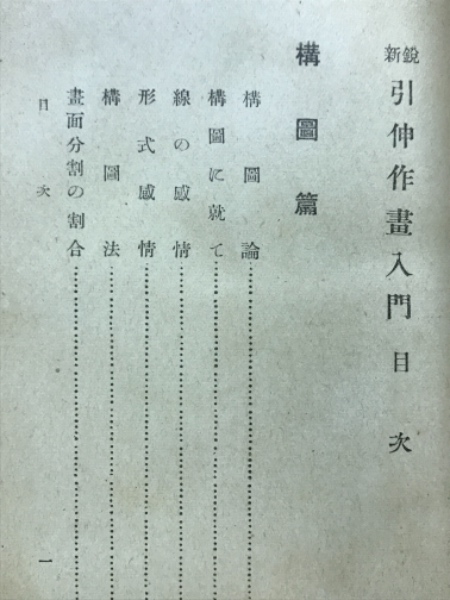 新鋭 引伸作畫入門 目次
構圖篇
構圖論
構圖に就て
線の感情
形式感情
構圖法
畫面分割の割合
目次 一